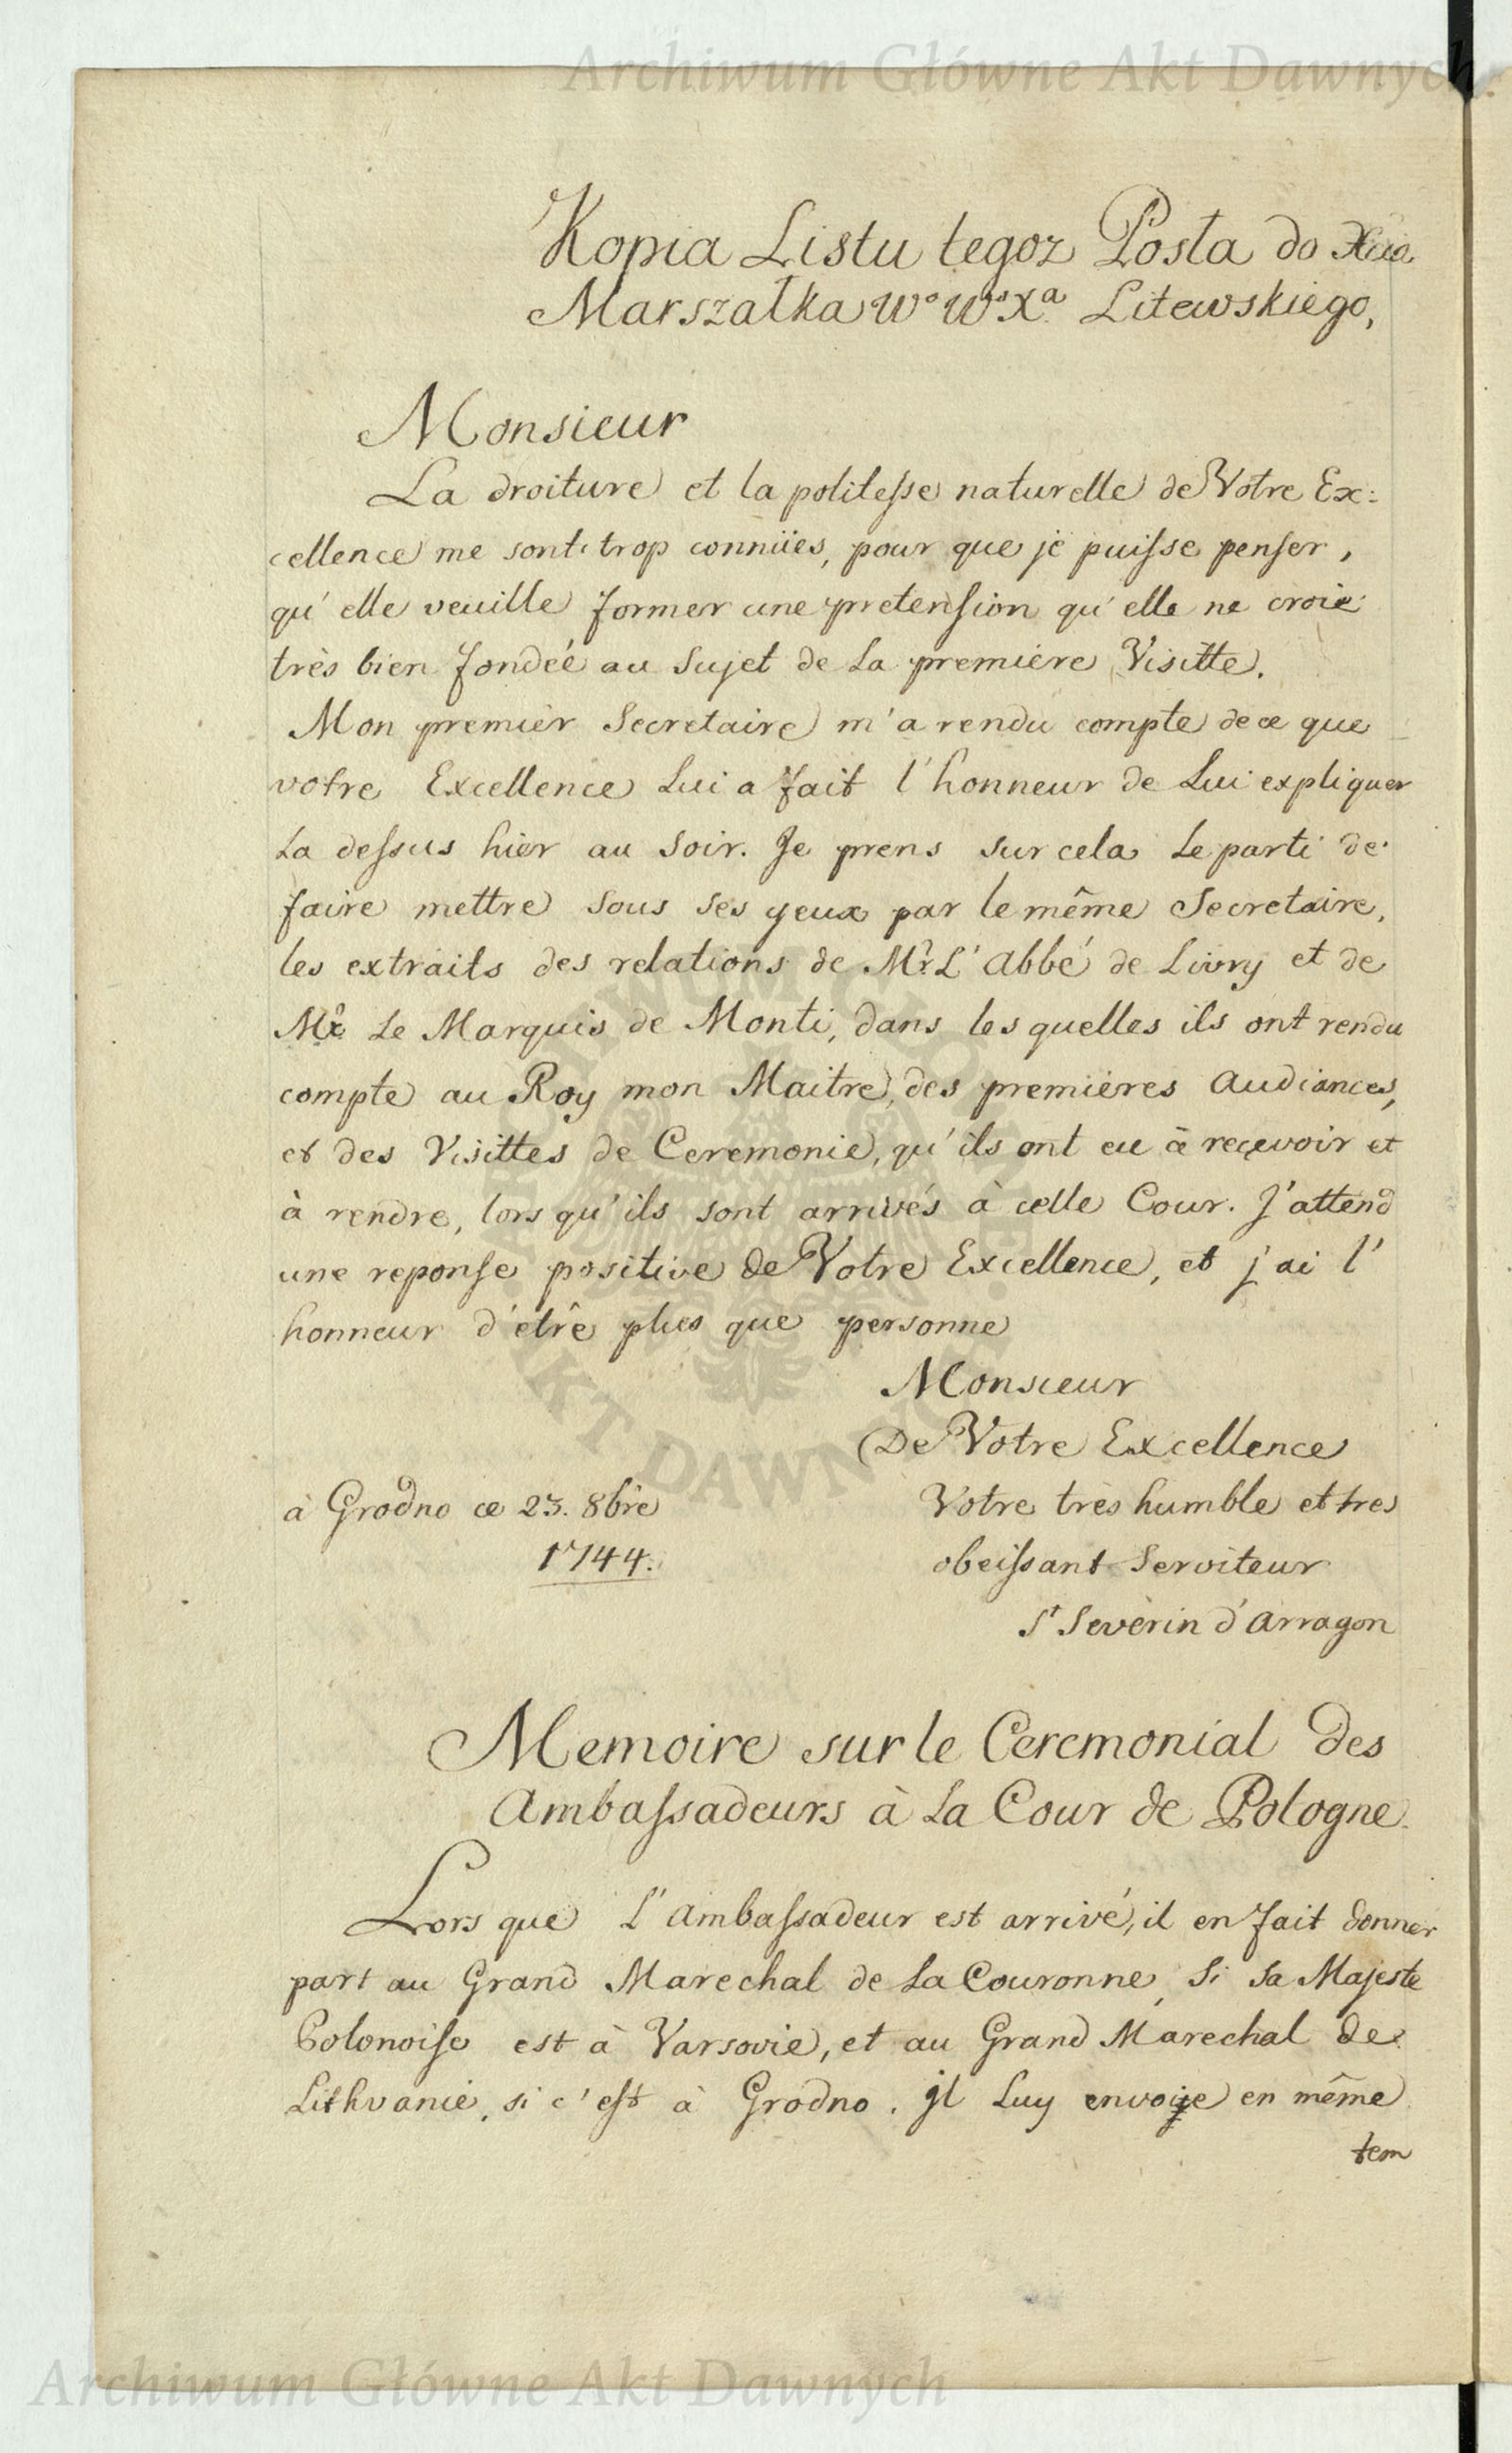 Archiwum Główne Akt Dawnych
Kopia Listu tegoz Posła do
Marszałka Wo Wo Xa Litewskiego,
Monsieur
La droiture et la politeſse naturelle de Votre Ex:
cellence me sont trop connües, pour que je puiſse penſer,
qu' elle veuille former une pretenſion qu' elle ne croie
très bien fondeé au Sujet de La premiére Visitte.
Mon premiér Secretaire m'a rendu compte de ce que
votre Excellence Lui a fait l'honneur de Lui expliquer
La deſsus hier au Soir. Je prens Sur cela Le parti de
faire mettre Sous Ses yeux par le même Secretaire,
les extraits des relations de Mr. L' Abbé de Livry et de
Mr. Le Marquis de Monti, dans les quelles ils ont rendu
compte au Roy mon Maitre, des premiéres Audiances,
et des Visittes de Ceremonie, qu' ils ont eu à reçevoir et
à rendre, lors qu' ils sont arrivés à celle Cour. J'attend
une reponſe positive de Votre Excellence, et j'ai l'
honneur d'etrê plus que personne
Monsieur
De Votre Excellence
à Grodno ce 23. 8bre Votre très humble et tres
1744. obeiſsant Serviteur
St Severin d'Arragon
Memoire sur le Ceremonial des
Ambaſsadeurs à La Cour de Pologne.
Lors que L'Ambaſsadeur est arrivé, il en fait donner
part au Grand Marechal de La Couronne, Si Sa Majeste
Polonoiſe est à Varsovie, et au Grand Marechal de
Lithvanie, si c'eſt à Grodno. Jl Luy envoye en même
tem
ARCHIWUM GŁÓWNE AKT DAWNYCH
Archiwum Główne Akt Dawnych